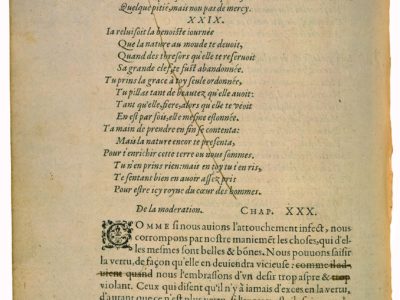 Quelque pitié, mais non pas de mercy.
XXIX.
Ia reluisoit la benoiste iournée
Que la nature au monde te deuoit,
Quand des thresors qu'elle te reseruoit
Sa grande clef, te fust abandonnée.
Tu prins la grace à toy seule ordonnée,
Tu pillas tant de beautez qu'elle auoit:
Tant qu'elle, fiere, alors qu'elle te veoit
En est par fois, elle mesme estonnée.
Ta main de prendre en fin se contenta:
Mais la nature encor te presenta,
Pour t'enrichir cette terre ou nous sommes.
Tu n'en prins rien: mais en toy tu t'en ris,
Te sentant bien en auoir assez pris
Pour estre icy royne du cœur des hommes.
De la moderation. CHAP. XXX.
COMME si nous auions l'attouchement infect, nous
corrompons par nostre maniemẽt les choses, qui d'el-
les mesmes sont belles & bõnes. Nous pouuons saisir
la vertu, de façon qu'elle en deuiendra vicieuse: comme il ad-
uient quand nous l'embrassons d'un desir trop aspre & trop
violant. Ceux qui disent qu'il n'y à iamais d'exces en la vertu,
d'autant que ce n'est plus vertu,